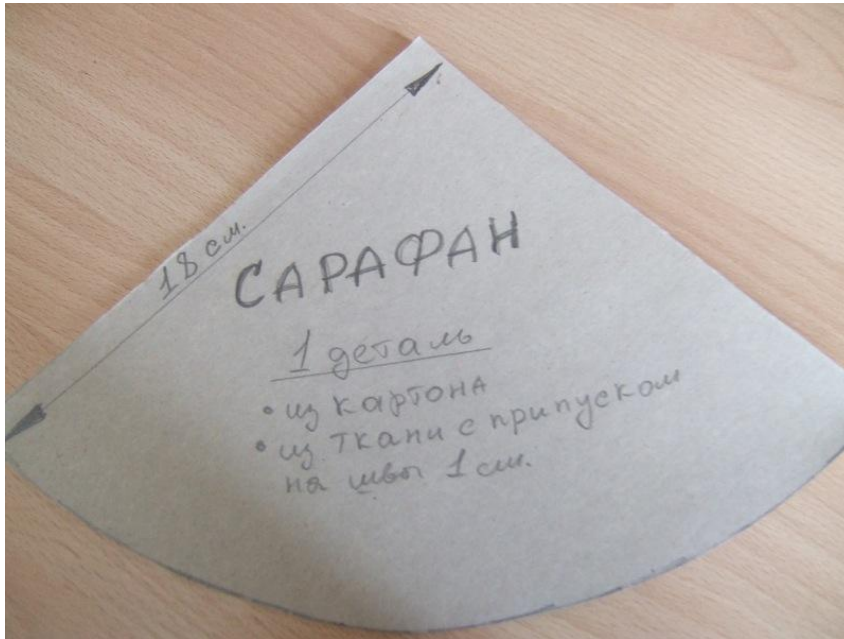 18 см.
САРАФАН
1 деталь
• из картона
• из ткани с припуском
на швы 1 см.